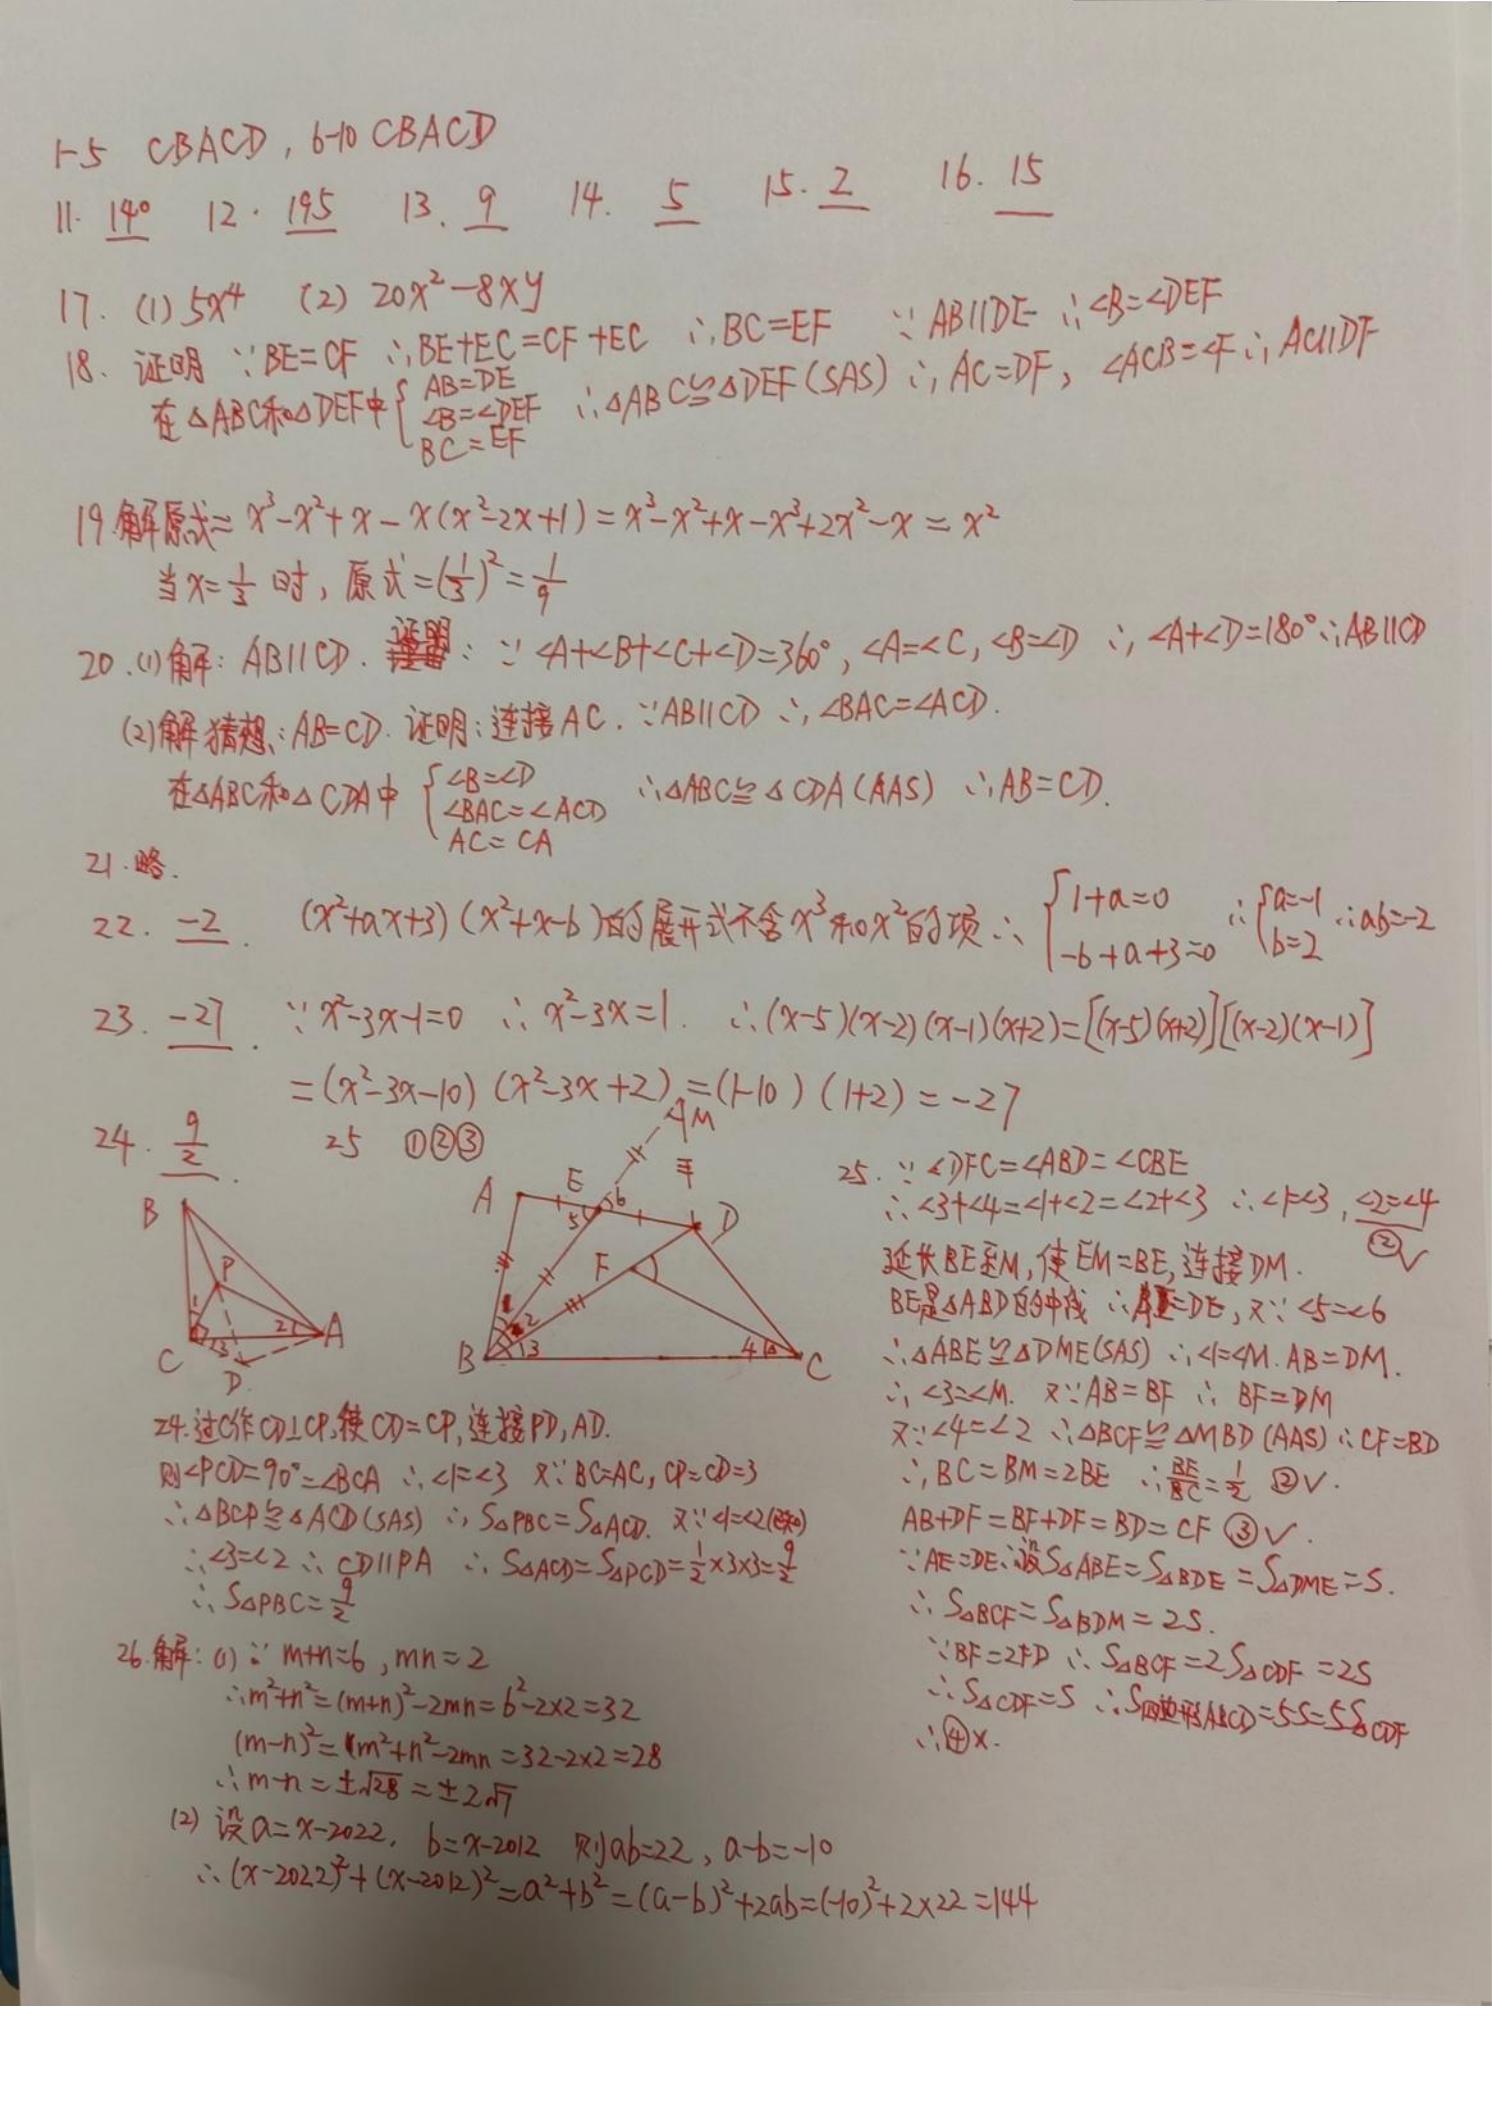 1-5 CBACD, 6-10 CBACD
11. 14° 12. 195 13. 9 14. 5 15. 2 16. 15
17. (1) 5x⁴ (2) 20x²-8xy
18. 证明 ∵BE=CF ∴BE+EC=CF+EC ∴BC=EF ∵AB∥DE ∴∠B=∠DEF
在△ABC和△DEF中 { AB=DE ∠B=∠DEF BC=EF ∴△ABC≌△DEF(SAS) ∴AC=DF, ∠ACB=∠F ∴AC∥DF
19.解原式=x³-x²+x-x(x²-2x+1)=x³-x²+x-x³+2x²-x=x²
当x=1/3时, 原式=(1/3)²=1/9
20.(1)解: AB∥CD. 证明: ∵∠A+∠B+∠C+∠D=360°, ∠A=∠C, ∠B=∠D ∴∠A+∠D=180° ∴AB∥CD
(2)解猜想: AB=CD. 证明: 连接AC. ∵AB∥CD ∴∠BAC=∠ACD.
在△ABC和△CDA中 { ∠B=∠D ∠BAC=∠ACD AC=CA ∴△ABC≌△CDA(AAS) ∴AB=CD.
21.略.
22. -2. (x²+ax+3)(x²+x-b)的展开式不含x³和x²的项 ∴ { 1+a=0 -b+a+3=0 ∴ { a=-1 b=2 ∴ab=-2
23. -27. ∵x²-3x-1=0 ∴x²-3x=1. ∴(x-5)(x-2)(x-1)(x+2)=[(x-5)(x+2)][(x-2)(x-1)]
=(x²-3x-10)(x²-3x+2)=(1-10)(1+2)=-27
24. 9/2. 25 ①②③
B P 1 2 3 A C D
A E 5 6 M D F 1 2 3 4 B C
24.过C作CD⊥CP,使CD=CP,连接PD,AD.
则∠PCD=90°=∠BCA ∴∠1=∠3 又∵BC=AC, CP=CD=3
∴△BCP≌△ACD(SAS) ∴S△PBC=S△ACD. 又∵∠1=∠2(已知)
∴∠3=∠2 ∴CD∥PA ∴S△ACD=S△PCD=1/2×3×3=9/2
∴S△PBC=9/2
25. ∵∠DFC=∠ABD=∠CBE
∴∠3+∠4=∠1+∠2=∠2+∠3 ∴∠1=∠3, ∠2=∠4
②√
延长BE至M,使EM=BE,连接DM.
BE是△ABD的中线 ∴AE=DE, 又∵∠5=∠6
∴△ABE≌△DME(SAS) ∴∠1=∠M. AB=DM.
∴∠3=∠M. 又∵AB=BF ∴BF=DM
又∵∠4=∠2 ∴△BCF≌△MBD(AAS) ∴CF=BD
∴BC=BM=2BE ∴BE/BC=1/2 ②√.
AB+DF=BF+DF=BD=CF ③√.
∵AE=DE ∴设S△ABE=S△BDE=S△DME=S.
∴S△BCF=S△BDM=2S.
∵BF=2FD ∴S△BCF=2S△CDF=2S
∴S△CDF=S ∴S四边形ABCD=5S=5S△CDF
∴④×.
26.解:(1)∵m+n=6, mn=2
∴m²+n²=(m+n)²-2mn=6²-2×2=32
(m-n)²=m²+n²-2mn=32-2×2=28
∴m-n=±√28=±2√7
(2) 设a=x-2022, b=x-2012 则ab=22, a-b=-10
∴(x-2022)²+(x-2012)²=a²+b²=(a-b)²+2ab=(-10)²+2×22=144